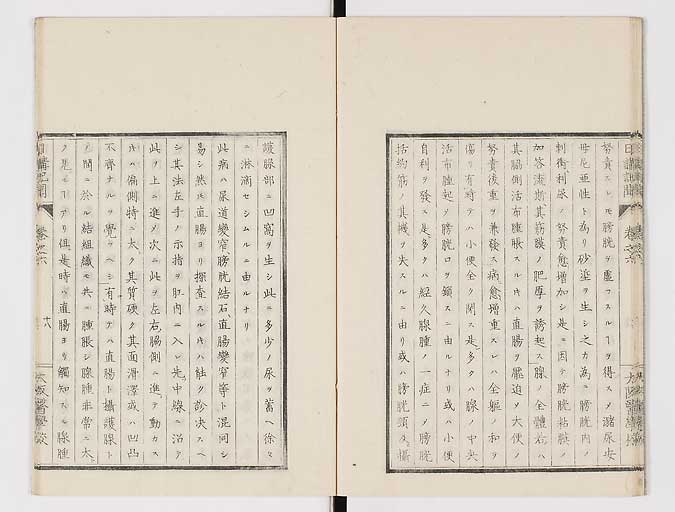 努責スレモ膀胱ヲ虚フスルヿヲ得スメ瀦尿安
母尼亜性ト為リ砂塗ヲ生シ之カ為ニ膀胱内ノ
刺衝利尿ノ努責愈増加シ是ニ因テ膀胱粘膜ノ
加答流斯其筋膜ノ肥厚ヲ誘起ス腺ノ全體若ハ
其腦側活布腫脹スル片ハ直腸ヲ壓迫メ大便ノ
努責後重ヲ兼發ス病愈増重スレハ全軀ノ和ヲ
傷リ有時テハ小便全ク閉ス是多クハ腺ノ中央
活布腫起メ膀胱口ヲ鎖スニ由ルナリ或ハ小便
自利ヲ發ス是多クハ経久腺腫ノ一症ニメ膀胱
括約筋ノ其機ヲ失スルニ由リ或ハ膀胱頸ノ攝
護腺部ニ凹窩ヲ生シ此ニ多少ノ尿ヲ蓄ヘ徐々
ニ淋滴セシムルニ由ルナリ
此病ハ尿道變窄膀胱結石直腸變窄等ト混同シ
易シ然レ直腸ヨリ探査スル片ハ能ク診决スヘ
シ其法左手ノ示指ヲ肛内ニ入レ先中線ニ沿テ
此ヲ上ニ進メ次ニ此ヲ左右腦側ニ進テ動カス
片ハ偏側特ニ大ク其質硬ク其面滑澤或ハ凹凸
不齊ナルヲ覺ウヘシ有時テハ直腸ト攝護腺ト
ノ間ニ於ル結組織モ共ニ腫脹シ腺腫非常ニ大
ク見ユルヿアリ但是時ハ直腸ヨリ觸知スル腺腫
日講記聞 卷之六
十八
大阪醫學校